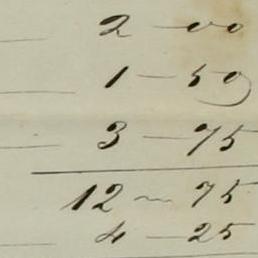 2 — 00
1 — 50
3 — 75
12 — 75
4 — 25